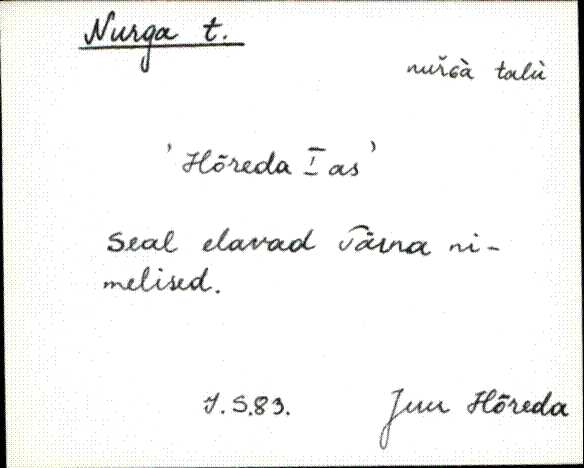 Nurga t.
nurɢà talù
'Hõreda I as'
Seal elavad Tärna ni-
melised.
J. S. 83.
Juu Hõreda